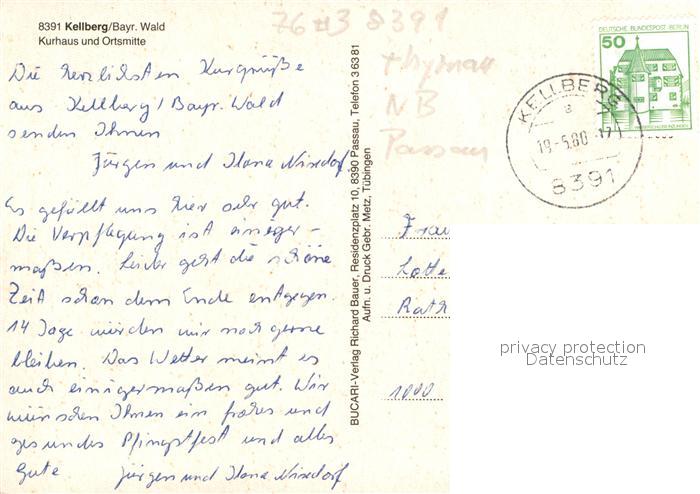 8391 Kellberg/Bayr. Wald
Kurhaus und Ortsmitte
Die herzlichsten Kurgrüße
aus Kellberg / Bayr. Wald
senden Ihnen
Jürgen und Ilona Nixdorf.
Es gefällt uns hier sehr gut.
Die Verpflegung ist einiger-
maßen. Leider geht die schöne
Zeit schon dem Ende entgegen.
14 Tage würden wir noch gerne
bleiben. Das Wetter meint es
auch einigermaßen gut. Wir
wünschen Ihnen ein frohes und
gesundes Pfingstfest und alles
Gute Jürgen und Ilona Nixdorf
BUCARI-Verlag Richard Bauer, Residenzplatz 10, 8390 Passau, Telefon 3 63 81
Aufn. u. Druck Gebr. Metz, Tübingen
8391
thyrnau
NB
Passau
DEUTSCHE BUNDESPOST BERLIN
50
KELLBERG
a
19-5.80-17
8391
Frau
Lotte
Rath
1000
privacy protection
Datenschutz